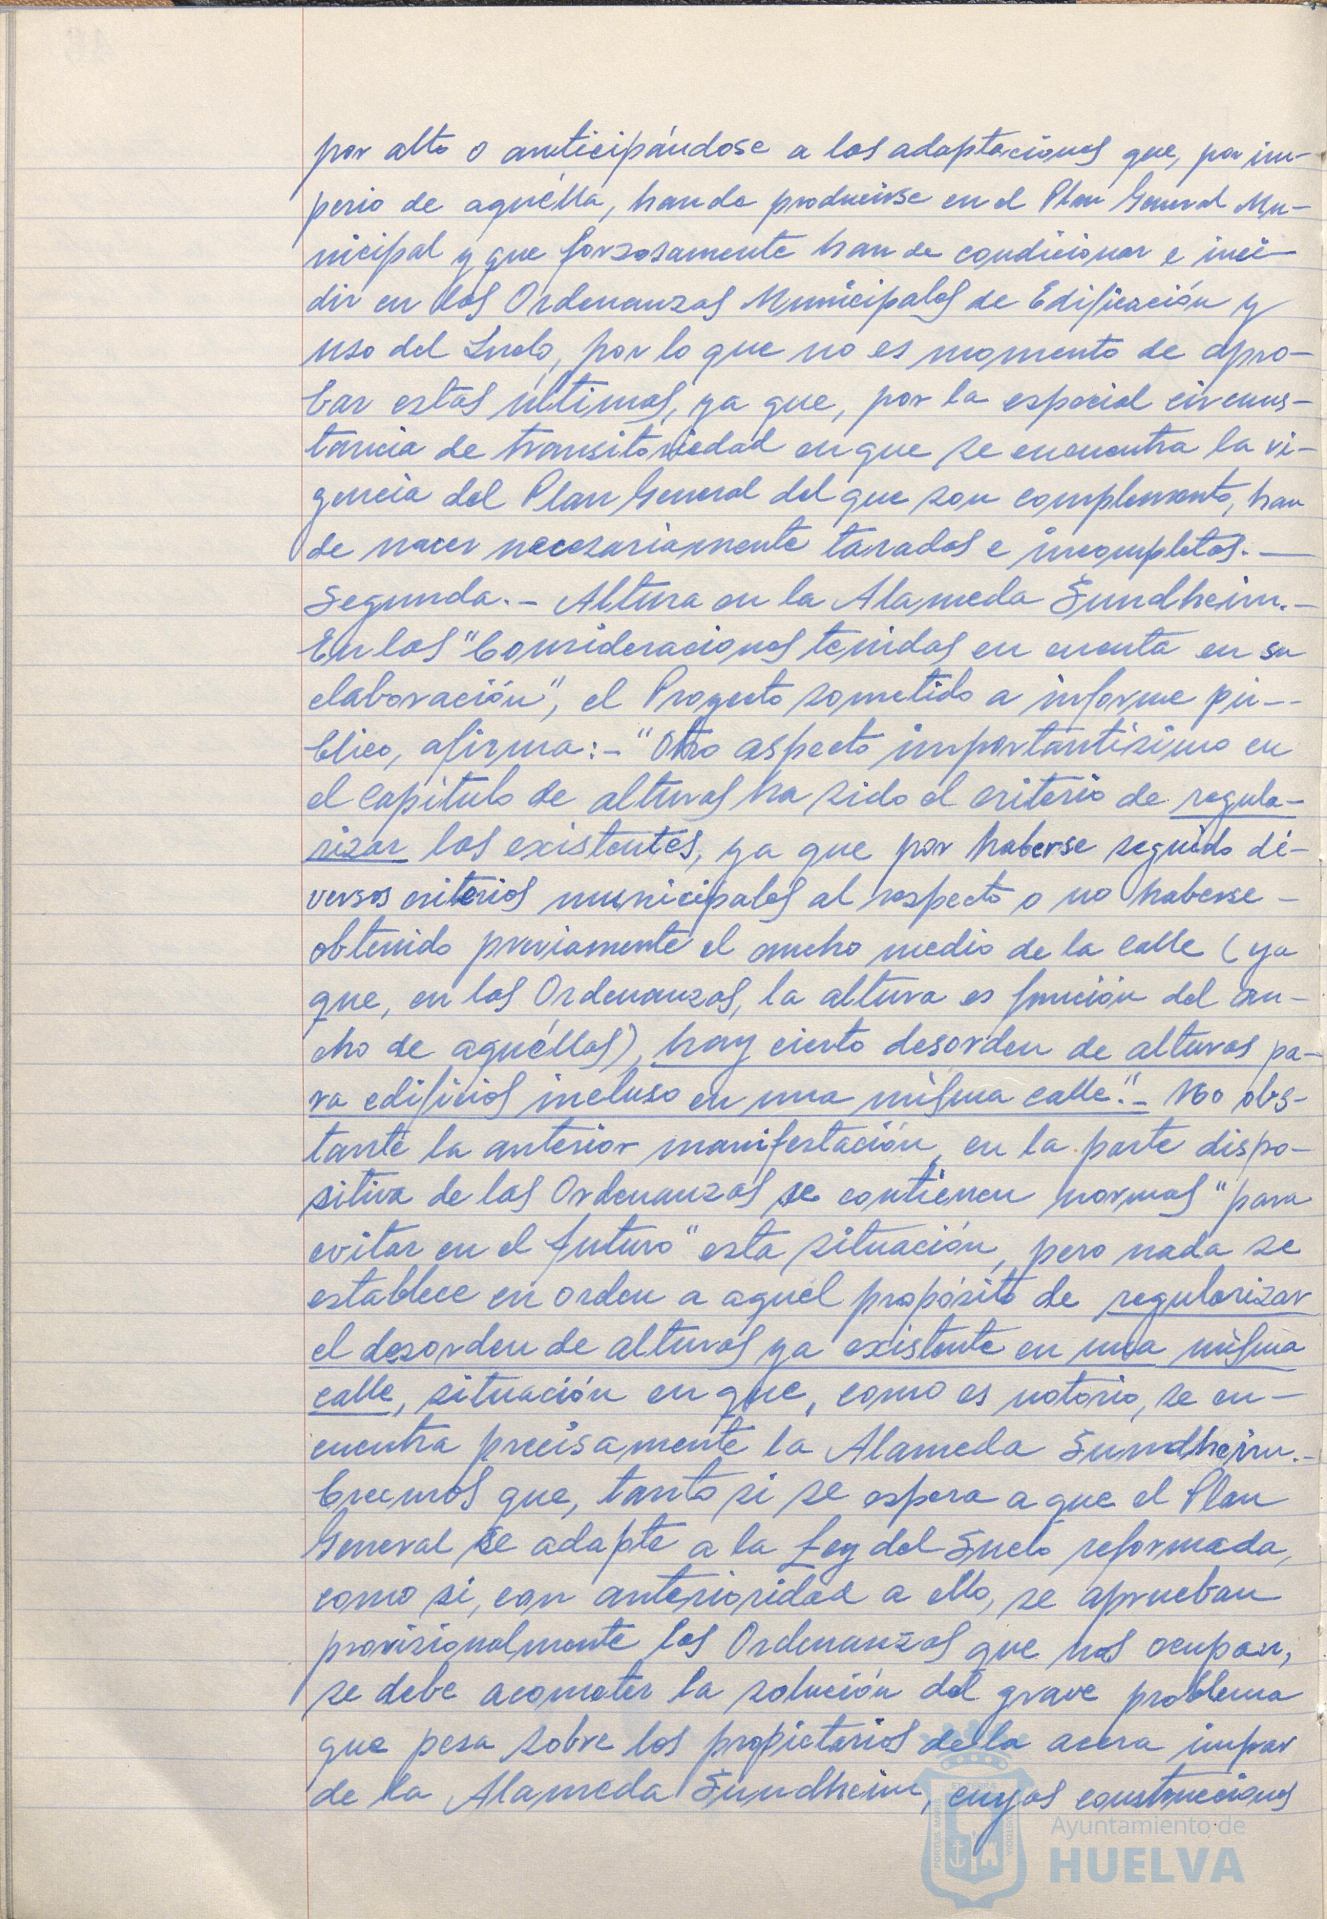 por alto o anticipándose a las adaptaciones que, por im-
perio de aquélla, han de producirse en el Plan General Mu-
nicipal y que forzosamente han de condicionar e inci-
dir en las Ordenanzas Municipales de Edificación y
uso del Suelo, por lo que no es momento de apro-
bar estas últimas, ya que, por la especial circuns-
tancia de transitoriedad en que se encuentra la vi-
gencia del Plan General del que son complemento, han
de nacer necesariamente taradas e incompletas.-
Segunda.- Altura en la Alameda Sundheim.-
En las "Consideraciones tenidas en cuenta en su
elaboración", el Proyecto sometido a informe pú--
blico, afirma:- "Otro aspecto importantísimo en
el capítulo de alturas ha sido el criterio de regula-
rizar las existentes, ya que por haberse seguido di-
versos criterios municipales al respecto o no haberse-
obtenido previamente el ancho medio de la calle (ya
que, en las Ordenanzas, la altura es función del an-
cho de aquéllas), hay cierto desorden de alturas pa-
ra edificios incluso en una misma calle."- No obs-
tante la anterior manifestación, en la parte dispo-
sitiva de las Ordenanzas se contienen normas "para
evitar en el futuro" esta situación, pero nada se
establece en orden a aquel propósito de regularizar
el desorden de alturas ya existente en una misma
calle, situación en que, como es notorio, se en-
cuentra precisamente la Alameda Sundheim.-
Creemos que, tanto si se espera a que el Plan
General se adapte a la Ley del Suelo reformada,
como si, con anterioridad a ello, se aprueban
provisionalmente las Ordenanzas que nos ocupan,
se debe acometer la solución del grave problema
que pesa sobre los propietarios de la acera impar
de la Alameda Sundheim, cuyas construcciones
Ayuntamiento de
HUELVA